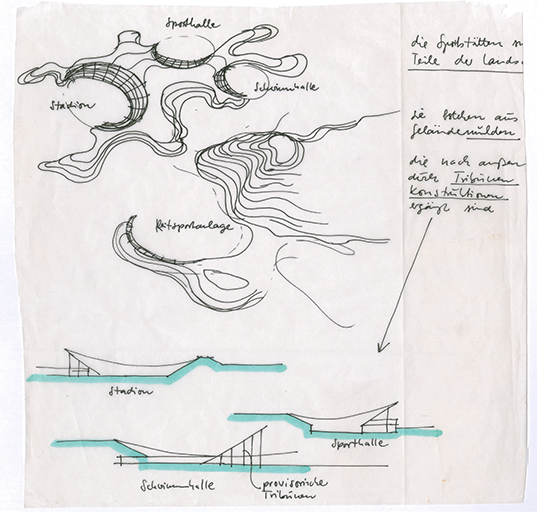 Sporthalle
Schwimmhalle
Stadion
Reitsportanlage
die Sportstätten
Teile der Lands
bestehen aus
Geländemulden
die nach außen
durch Tribünen
Konstruktionen
ergänzt sind
Stadion
Sporthalle
Schwimmhalle
provisorische
Tribünen